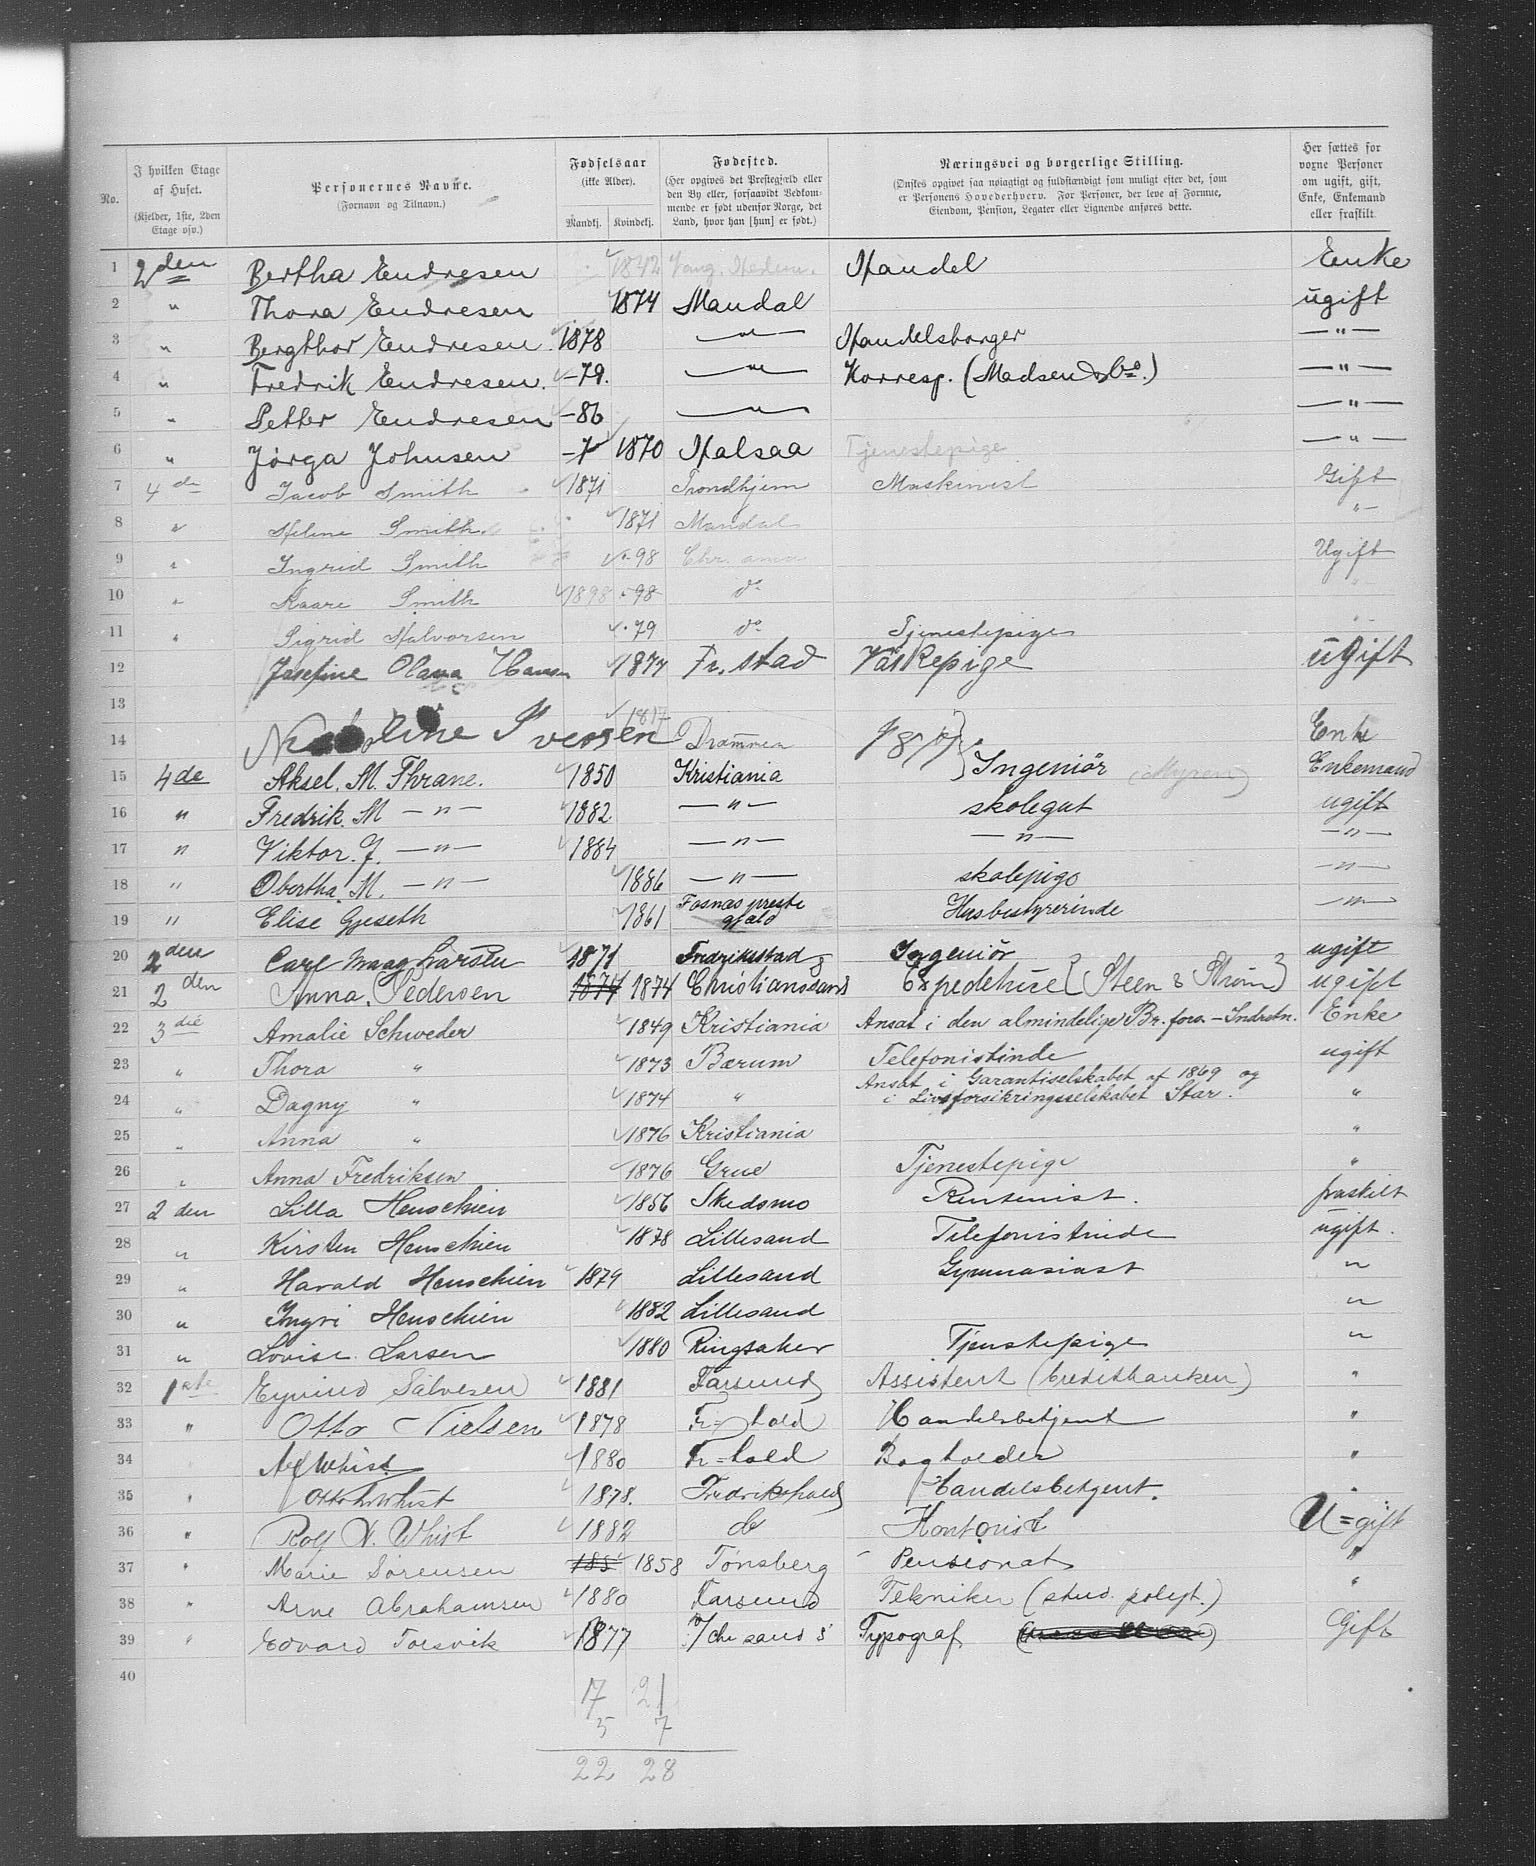 No. I hvilken Etage af Huset. (Kjelder, 1ste, 2den Etage osv.) Personernes Navne. (Fornavn og Tilnavn.) Fødselsaar (ikke Alder). Mandkj. Kvindekj. Fødested. (Her opgives det Prestegjæld eller den By eller, forsaavidt Vedkommende er født udenfor Norge, det Land, hvor han [hun] er født.) Næringsvei og borgerlige Stilling. (Ønskes opgivet saa nøiagtigt og fuldstændigt som muligt efter det, som er Personens Hovederhverv. For Personer, der leve af Formue, Eiendom, Pension, Legater eller Lignende anføres dette. Her sættes for voxne Personer om ugift, gift, Enke, Enkemand eller fraskilt.
1 2den Bertha Endresen 1842 Handel Enke
2 " Thora Endresen 1874 Mandal ugift
3 " Bergthor Endresen 1878 — " — Handelsborger — " —
4 " Fredrik Endresen. -79. — " — Korresp. (Madsen & Co.) — " —
5 " Petter Endresen -86 — " — — " —
6 " Jørga Johnsen 1870 Halsaa Tjenestepige — " —
7 4de Jacob Smith 1871 Trondhjem Maskinist Gift
8 " Helene Smith. 1871 Mandal "
9 " Ingrid Smith 98 Chr. ania Ugift
10 " Kaare Smith 1898 98 do "
11 " Sigrid Halvorsen 79 do Tjenestepige "
12 Josefine Olava Hansen 1877 Fr. stad Vaskepige ugift
13
14 Iversen 1817 Drammen 1817 Enke
15 4de Aksel. M. Thrane. 1850 Kristiania Ingeniør (Myren) Enkemand
16 " Fredrik. M — " — 1882 — " — skolegut ugift
17 " Viktor. J. — " — 1884 — " — — " — — " —
18 " Obertha M. — " — 1886 — " — skolepige — " —
19 " Elise Gjeseth 1861 Fosnæs prestegjæld Husbestyrerinde — " —
20 2den Carl Maag Larsen 1871 Fredrikstad Ingeniør ugift
21 2den Anna Pedersen 1874 1874 Christianssand Expeditrice (Steen & Strøm) ugift
22 3die Amalie Schweder 1849 Kristiania Ansat i den almindelige Br. fors. - Indretn. Enke
23 " Thora " 1873 Bærum Telefonistinde ugift
24 " Dagny " 1874 " Ansat i Garantiselskabet af 1869 og i Livsforsikringsselskabet Star. "
25 " Anna " 1876 Kristiania "
26 " Anna Fredriksen 1876 Grue Tjenestepige "
27 2den Lilla Henschien 1856 Skedsmo Rentenist. fraskilt
28 " Kirsten Henschien 1878 Lillesand Telefonistinde ugift.
29 " Harald Henschien 1879 Lillesand Gymnasiast "
30 " Yngvi Henschien 1882 Lillesand "
31 " Lovise Larsen 1880 Ringsaker Tjenstepige "
32 1ste Eyvind Salvesen 1881 Farsund Assistent (Creditbanken) "
33 " Otto Nielsen 1878 Fr=hald Handelsbetjent "
34 Whist 1880 Fr=hald Bogholder "
35 " Whist 1878. Fredrikshald Handelsbetjent. "
36 " Rolf N. Whist 1882 do Kontorist U=gift
37 " Marie Sørensen 1858 Tønsberg Pensionat "
38 " Arne Abrahamsen 1880 Farsund Tekniker (stud. polyt.) "
39 " Edvard Torsvik 1877 Typograf Gift
40
17 21
5 7
22 28